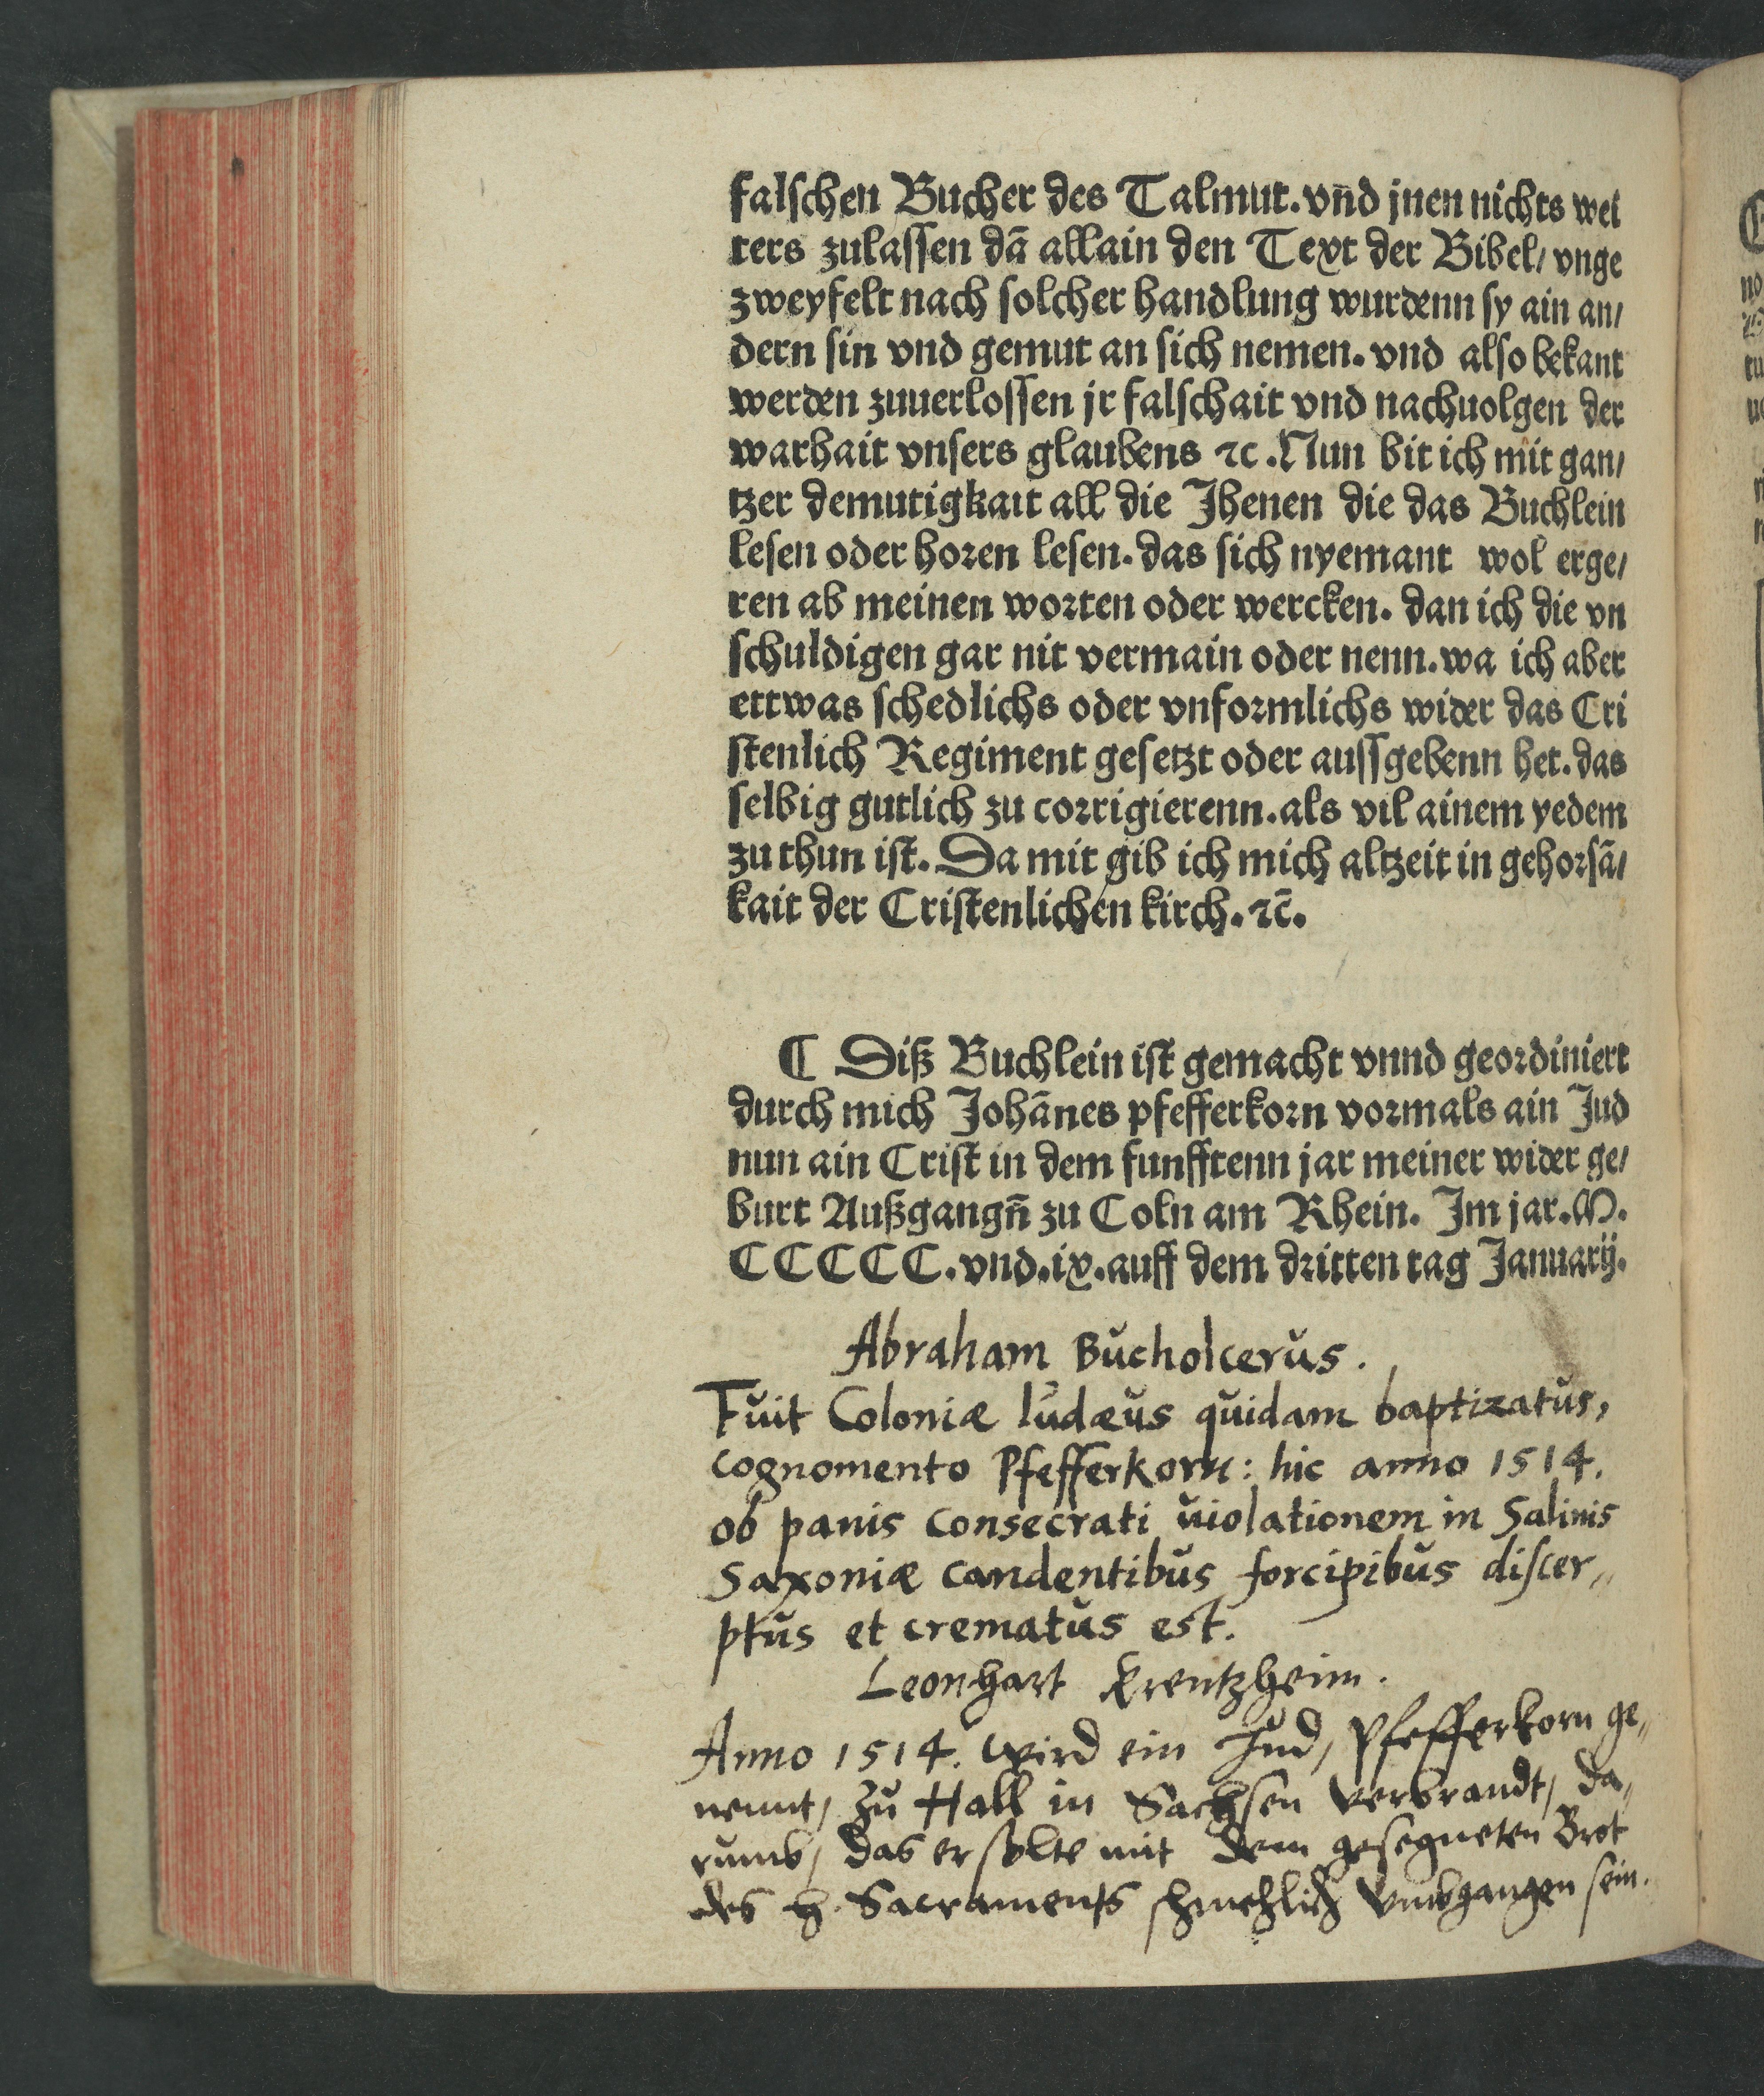 falschen Bucher des Talmut. vn̄d jnen nichts wei
ters zulassen dā allain den Text der Bibel/ vnge
zweyfelt nach solcher handlung wurdenn sy ain an/
dern sin vnd gemut an sich nemen. vnd also bekant
werden zuuerlossen jr falschait vnd nachuolgen der
warhait vnsers glaubens ⁊c. Nun bit ich mit gan/
tzer demutigkait all die Jhenen die das Buchlein
lesen oder horen lesen. das sich nyemant wol erge/
ren ab meinen worten oder wercken. dan ich die vn
schuldigen gar nit vermain oder nenn. wa ich aber
ettwas schedlichs oder vnformlichs wider das Cri
stenlich Regiment gesetzt oder aussgebenn het. das
selbig gutlich zu corrigierenn. als vil ainem yedem
zu thun ist. Da mit gib ich mich altzeit in gehorsā/
kait der Cristenlichen kirch. ⁊c̄.
¶ Diß Buchlein ist gemacht vnnd geordiniert
durch mich Johānes pfefferkorn vormals ain Jud
nun ain Crist in dem funfftenn jar meiner wider ge/
burt Außgangn̄ zu Coln am Rhein. Im jar. M.
CCCCC. vnd. ix. auff dem dritten tag Januarij.
Abraham Bucholcerus.
Fuit Coloniæ Iudæus quidam baptizatus,
cognomento Pfefferkorn: hic anno 1514.
ob panis consecrati uiolationem in Salinis
Saxoniæ candentibus forcipibus discer„
ptus et crematus est.
Leonhart Krentzheim.
Anno 1514. wird ein Jud, Pfefferkorn ge„
nennt, zu Hall in Sachsen verbrandt, da„
rumb, das er solte mit dem gesegneten Brot
des h. Sacraments schmehlich vmbgangen sein.